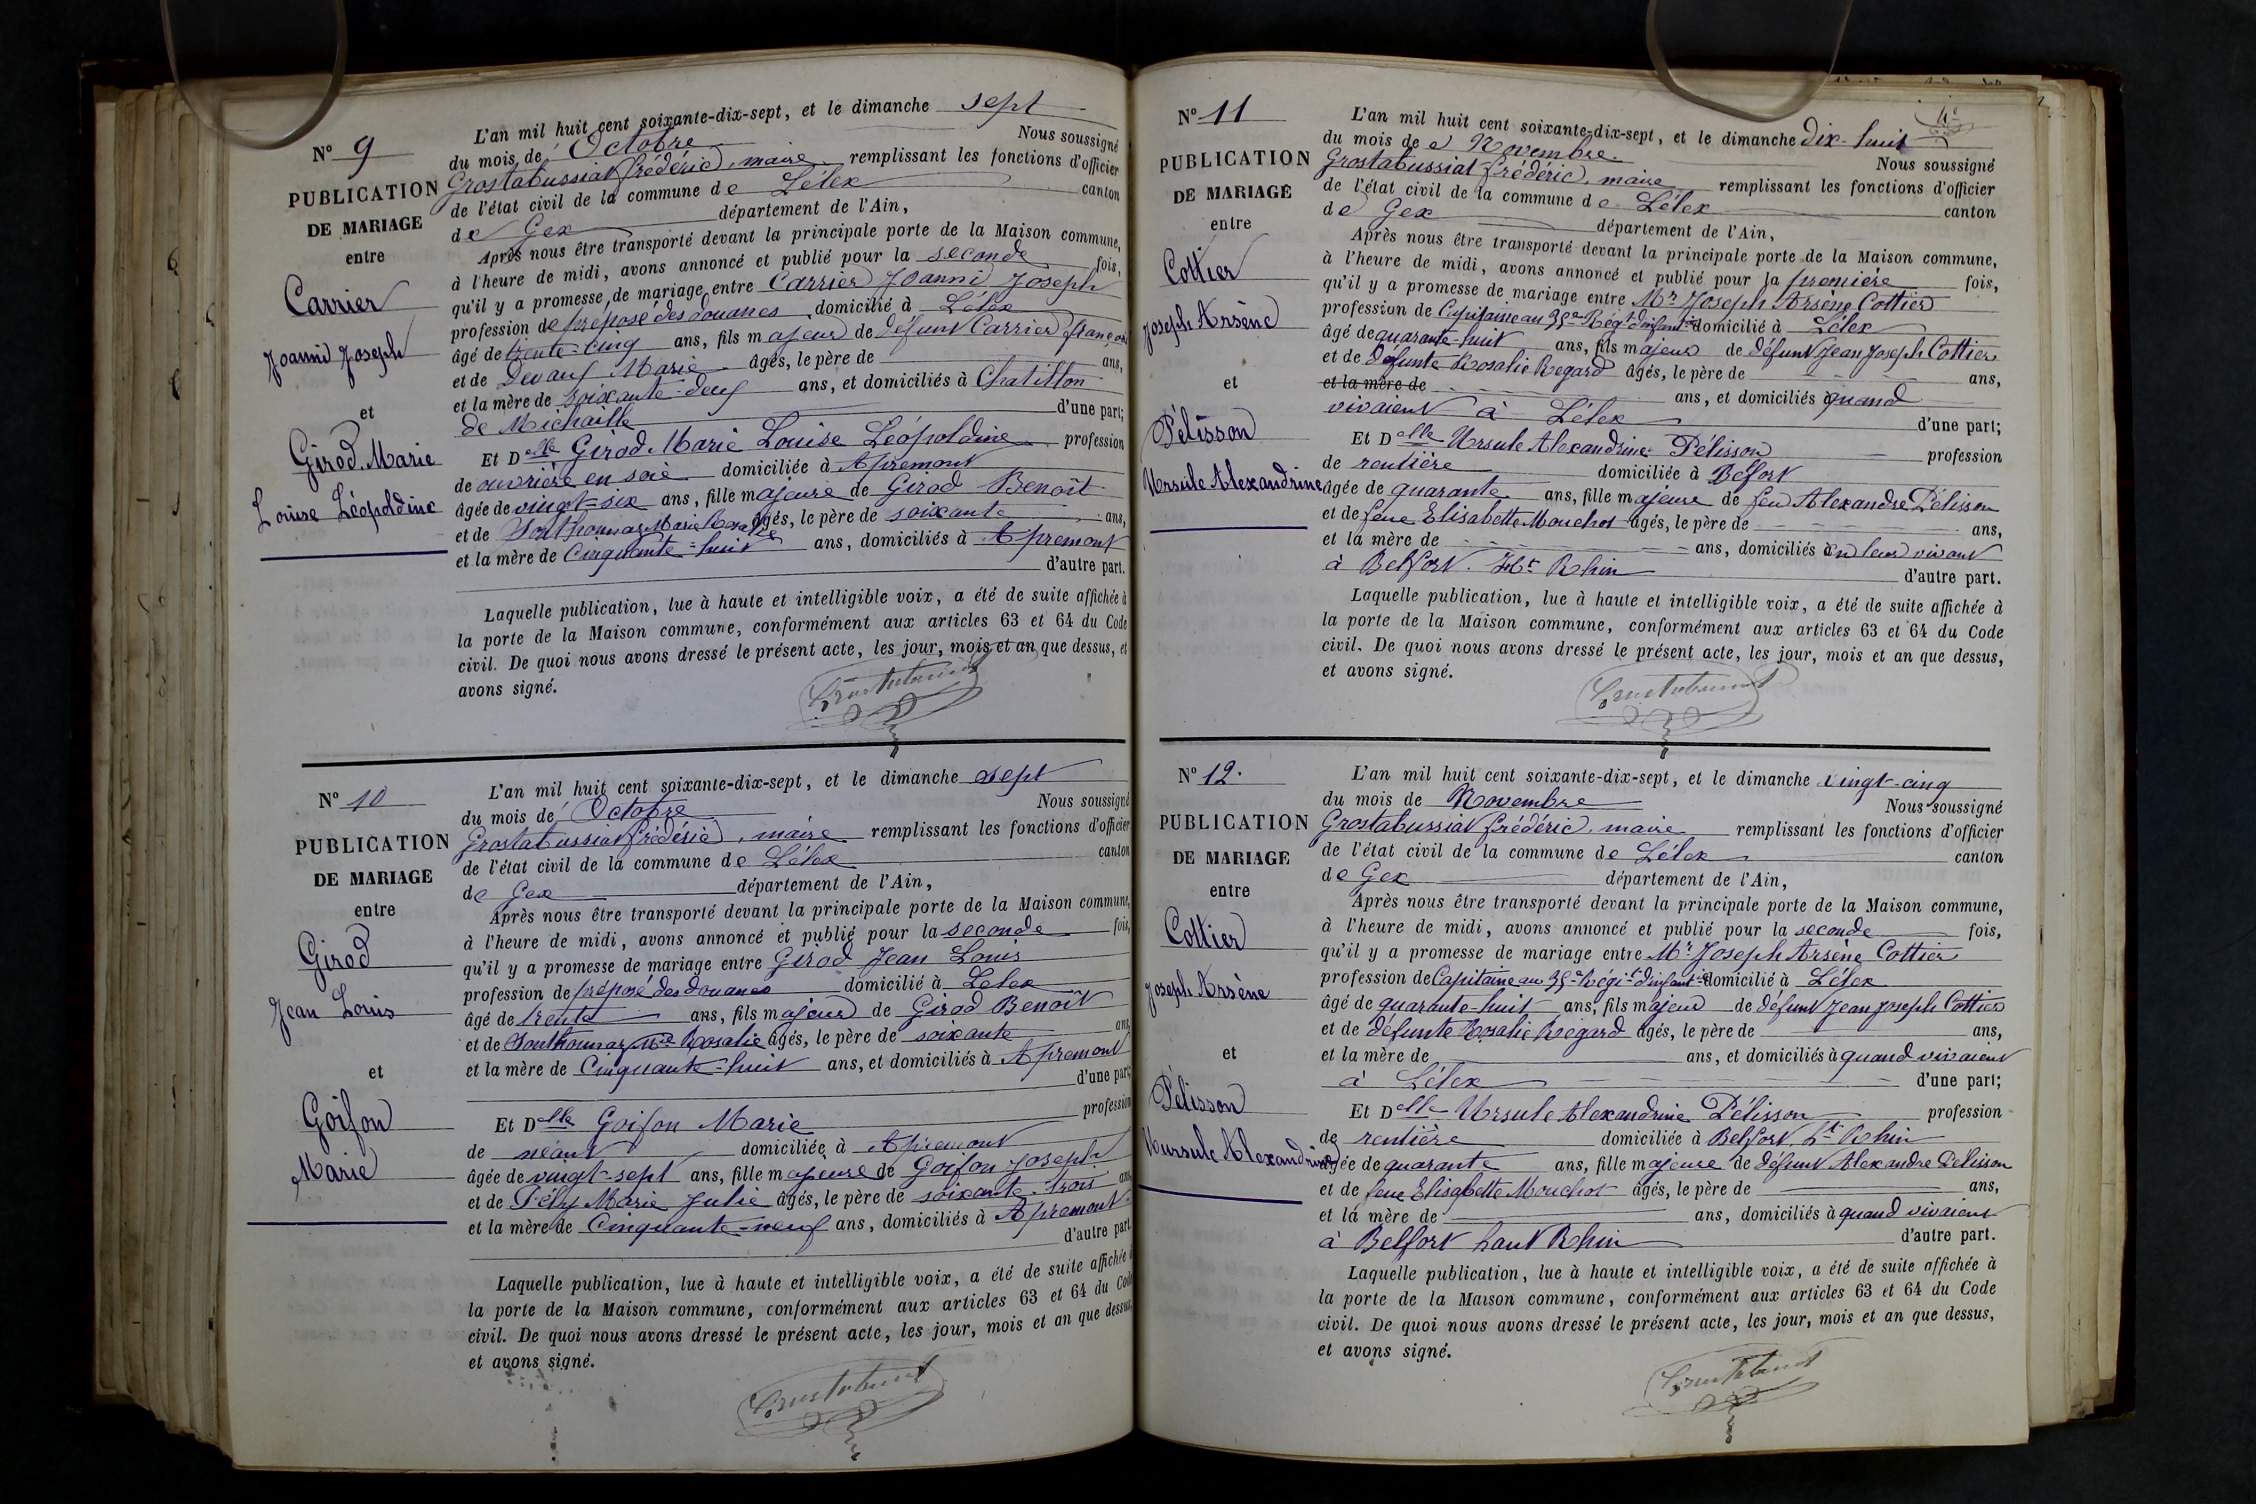 N° 9
PUBLICATION
DE MARIAGE
entre
Carrier
Joanni Joseph
et
Girod Marie
Louise Léopoldine
L'an mil huit cent soixante-dix-sept, et le dimanche sept
du mois de Octobre Nous soussigné
Grostabussiat frédéric, maire remplissant les fonctions d'officier
de l'état civil de la commune de Lélex canton
de Gex département de l'Ain,
Après nous être transporté devant la principale porte de la Maison commune,
à l'heure de midi, avons annoncé et publié pour la seconde fois,
qu'il y a promesse de mariage entre Carrier Joanni Joseph
profession de préposé des douanes domicilié à Lélex
âgé de trente-cinq ans, fils majeur de défunt Carrier françois
et de Devauf Marie âgés, le père de ans,
et la mère de soixante-deux ans, et domiciliés à Chatillon
de Michaille d'une part;
Et Delle Girod Marie Louise Léopoldine profession
de ouvrière en soie domiciliée à Apremont
âgée de vingt-six ans, fille majeure de Girod Benoît
et de Southonnax Marie Rosalie âgés, le père de soixante ans,
et la mère de Cinquante-huit ans, domiciliés à Apremont
d'autre part.
Laquelle publication, lue à haute et intelligible voix, a été de suite affichée à
la porte de la Maison commune, conformément aux articles 63 et 64 du Code
civil. De quoi nous avons dressé le présent acte, les jour, mois et an que dessus, et
avons signé.
Grostabussiat
N° 10
PUBLICATION
DE MARIAGE
entre
Girod
Jean Louis
et
Goifon
Marie
L'an mil huit cent soixante-dix-sept, et le dimanche sept
du mois de Octobre Nous soussigné
Grostabussiat frédéric, maire remplissant les fonctions d'officier
de l'état civil de la commune de Lélex canton
de Gex département de l'Ain,
Après nous être transporté devant la principale porte de la Maison commune,
à l'heure de midi, avons annoncé et publié pour la seconde fois,
qu'il y a promesse de mariage entre Girod Jean Louis
profession de préposé des douanes domicilié à Lelex
âgé de trente ans, fils majeur de Girod Benoît
et de Southonnax Mie Rosalie âgés, le père de soixante ans,
et la mère de Cinquante-huit ans, et domiciliés à Apremont
d'une part;
Et Delle Goifon Marie profession
de néant domiciliée à Apremont
âgée de vingt-sept ans, fille majeure de Goifon Joseph
et de Pély Marie Julie âgés, le père de soixante-trois ans,
et la mère de Cinquante-neuf ans, domiciliés à Apremont
d'autre part.
Laquelle publication, lue à haute et intelligible voix, a été de suite affichée à
la porte de la Maison commune, conformément aux articles 63 et 64 du Code
civil. De quoi nous avons dressé le présent acte, les jour, mois et an que dessus,
et avons signé.
Grostabussiat
N° 11
PUBLICATION
DE MARIAGE
entre
Cottier
Joseph Arsène
et
Pélisson
Ursule Alexandrine
L'an mil huit cent soixante-dix-sept, et le dimanche dix-huit
du mois de Novembre. Nous soussigné
Grostabussiat frédéric, maire remplissant les fonctions d'officier
de l'état civil de la commune de Lélex canton
de Gex département de l'Ain,
Après nous être transporté devant la principale porte de la Maison commune,
à l'heure de midi, avons annoncé et publié pour la première fois,
qu'il y a promesse de mariage entre Mr Joseph Arsène Cottier
profession de Capitaine au 35e Régt d'infantie domicilié à Lélex
âgé de quarante-huit ans, fils majeur de défunt Jean Joseph Cottier
et de défunte Rosalie Regard âgés, le père de ans,
et la mère de ans, et domiciliés à quand
vivaient à Lélex d'une part;
Et Delle Ursule Alexandrine Pélisson profession
de rentière domiciliée à Belfort
âgée de quarante ans, fille majeure de feu Alexandre Pélisson
et de feue Elisabette Mouchot âgés, le père de ans,
et la mère de ans, domiciliés à en leur vivant
à Belfort. Ht Rhin d'autre part.
Laquelle publication, lue à haute et intelligible voix, a été de suite affichée à
la porte de la Maison commune, conformément aux articles 63 et 64 du Code
civil. De quoi nous avons dressé le présent acte, les jour, mois et an que dessus,
et avons signé.
Grostabussiat
N° 12.
PUBLICATION
DE MARIAGE
entre
Cottier
Joseph Arsène
et
Pélisson
Uursule Alexandrine
L'an mil huit cent soixante-dix-sept, et le dimanche vingt-cinq
du mois de Novembre Nous soussigné
Grostabussiat frédéric, maire remplissant les fonctions d'officier
de l'état civil de la commune de Lélex canton
de Gex département de l'Ain,
Après nous être transporté devant la principale porte de la Maison commune,
à l'heure de midi, avons annoncé et publié pour la seconde fois,
qu'il y a promesse de mariage entre Mr Joseph Arsène Cottier
profession de Capitaine au 35e Régit d'infantie domicilié à Lélex
âgé de quarante-huit ans, fils majeur de défunt Jean Joseph Cottier
et de défunte Rosalie Régard âgés, le père de ans,
et la mère de ans, et domiciliés à quand vivaient
à Lélex d'une part;
Et Delle Ursule Alexandrine Pélisson profession
de rentière domiciliée à Belfort, Ht Rhin
âgée de quarante ans, fille majeure de défunt Alexandre Pelisson
et de feue Elisabette Mouchot âgés, le père de ans,
et la mère de ans, domiciliés à quand vivaient
à Belfort haut Rhin d'autre part.
Laquelle publication, lue à haute et intelligible voix, a été de suite affichée à
la porte de la Maison commune, conformément aux articles 63 et 64 du Code
civil. De quoi nous avons dressé le présent acte, les jour, mois et an que dessus,
et avons signé.
Grostabussiat